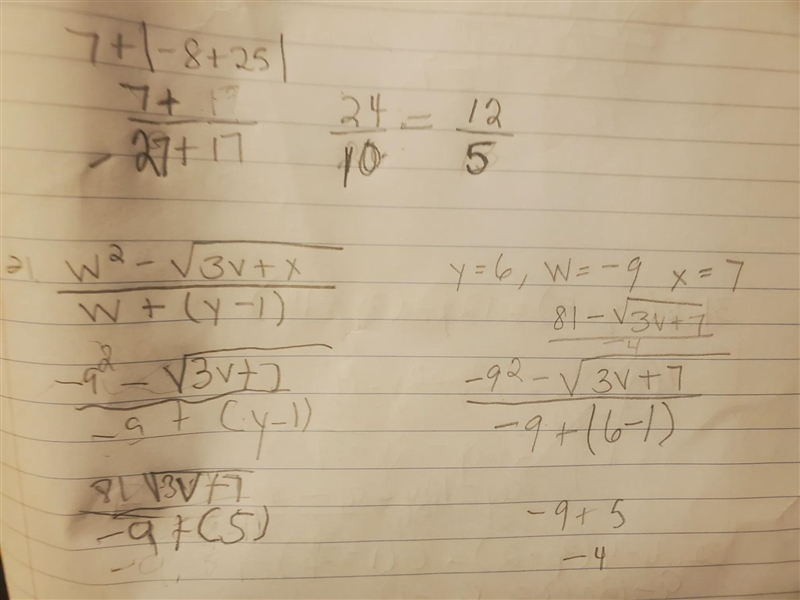 7 + |-8 + 25|
7 +
- 27 + 17
24/10 = 12/5
w² - √3v + x
w + (y - 1)
y = 6, w = -9 x = 7
81 - √3v + 7
-4
-9² - √3v + 7
-9 + (y - 1)
-9² - √3v + 7
-9 + (6 - 1)
81 √3v + 7
-9 + (5)
-9 + 5
-4